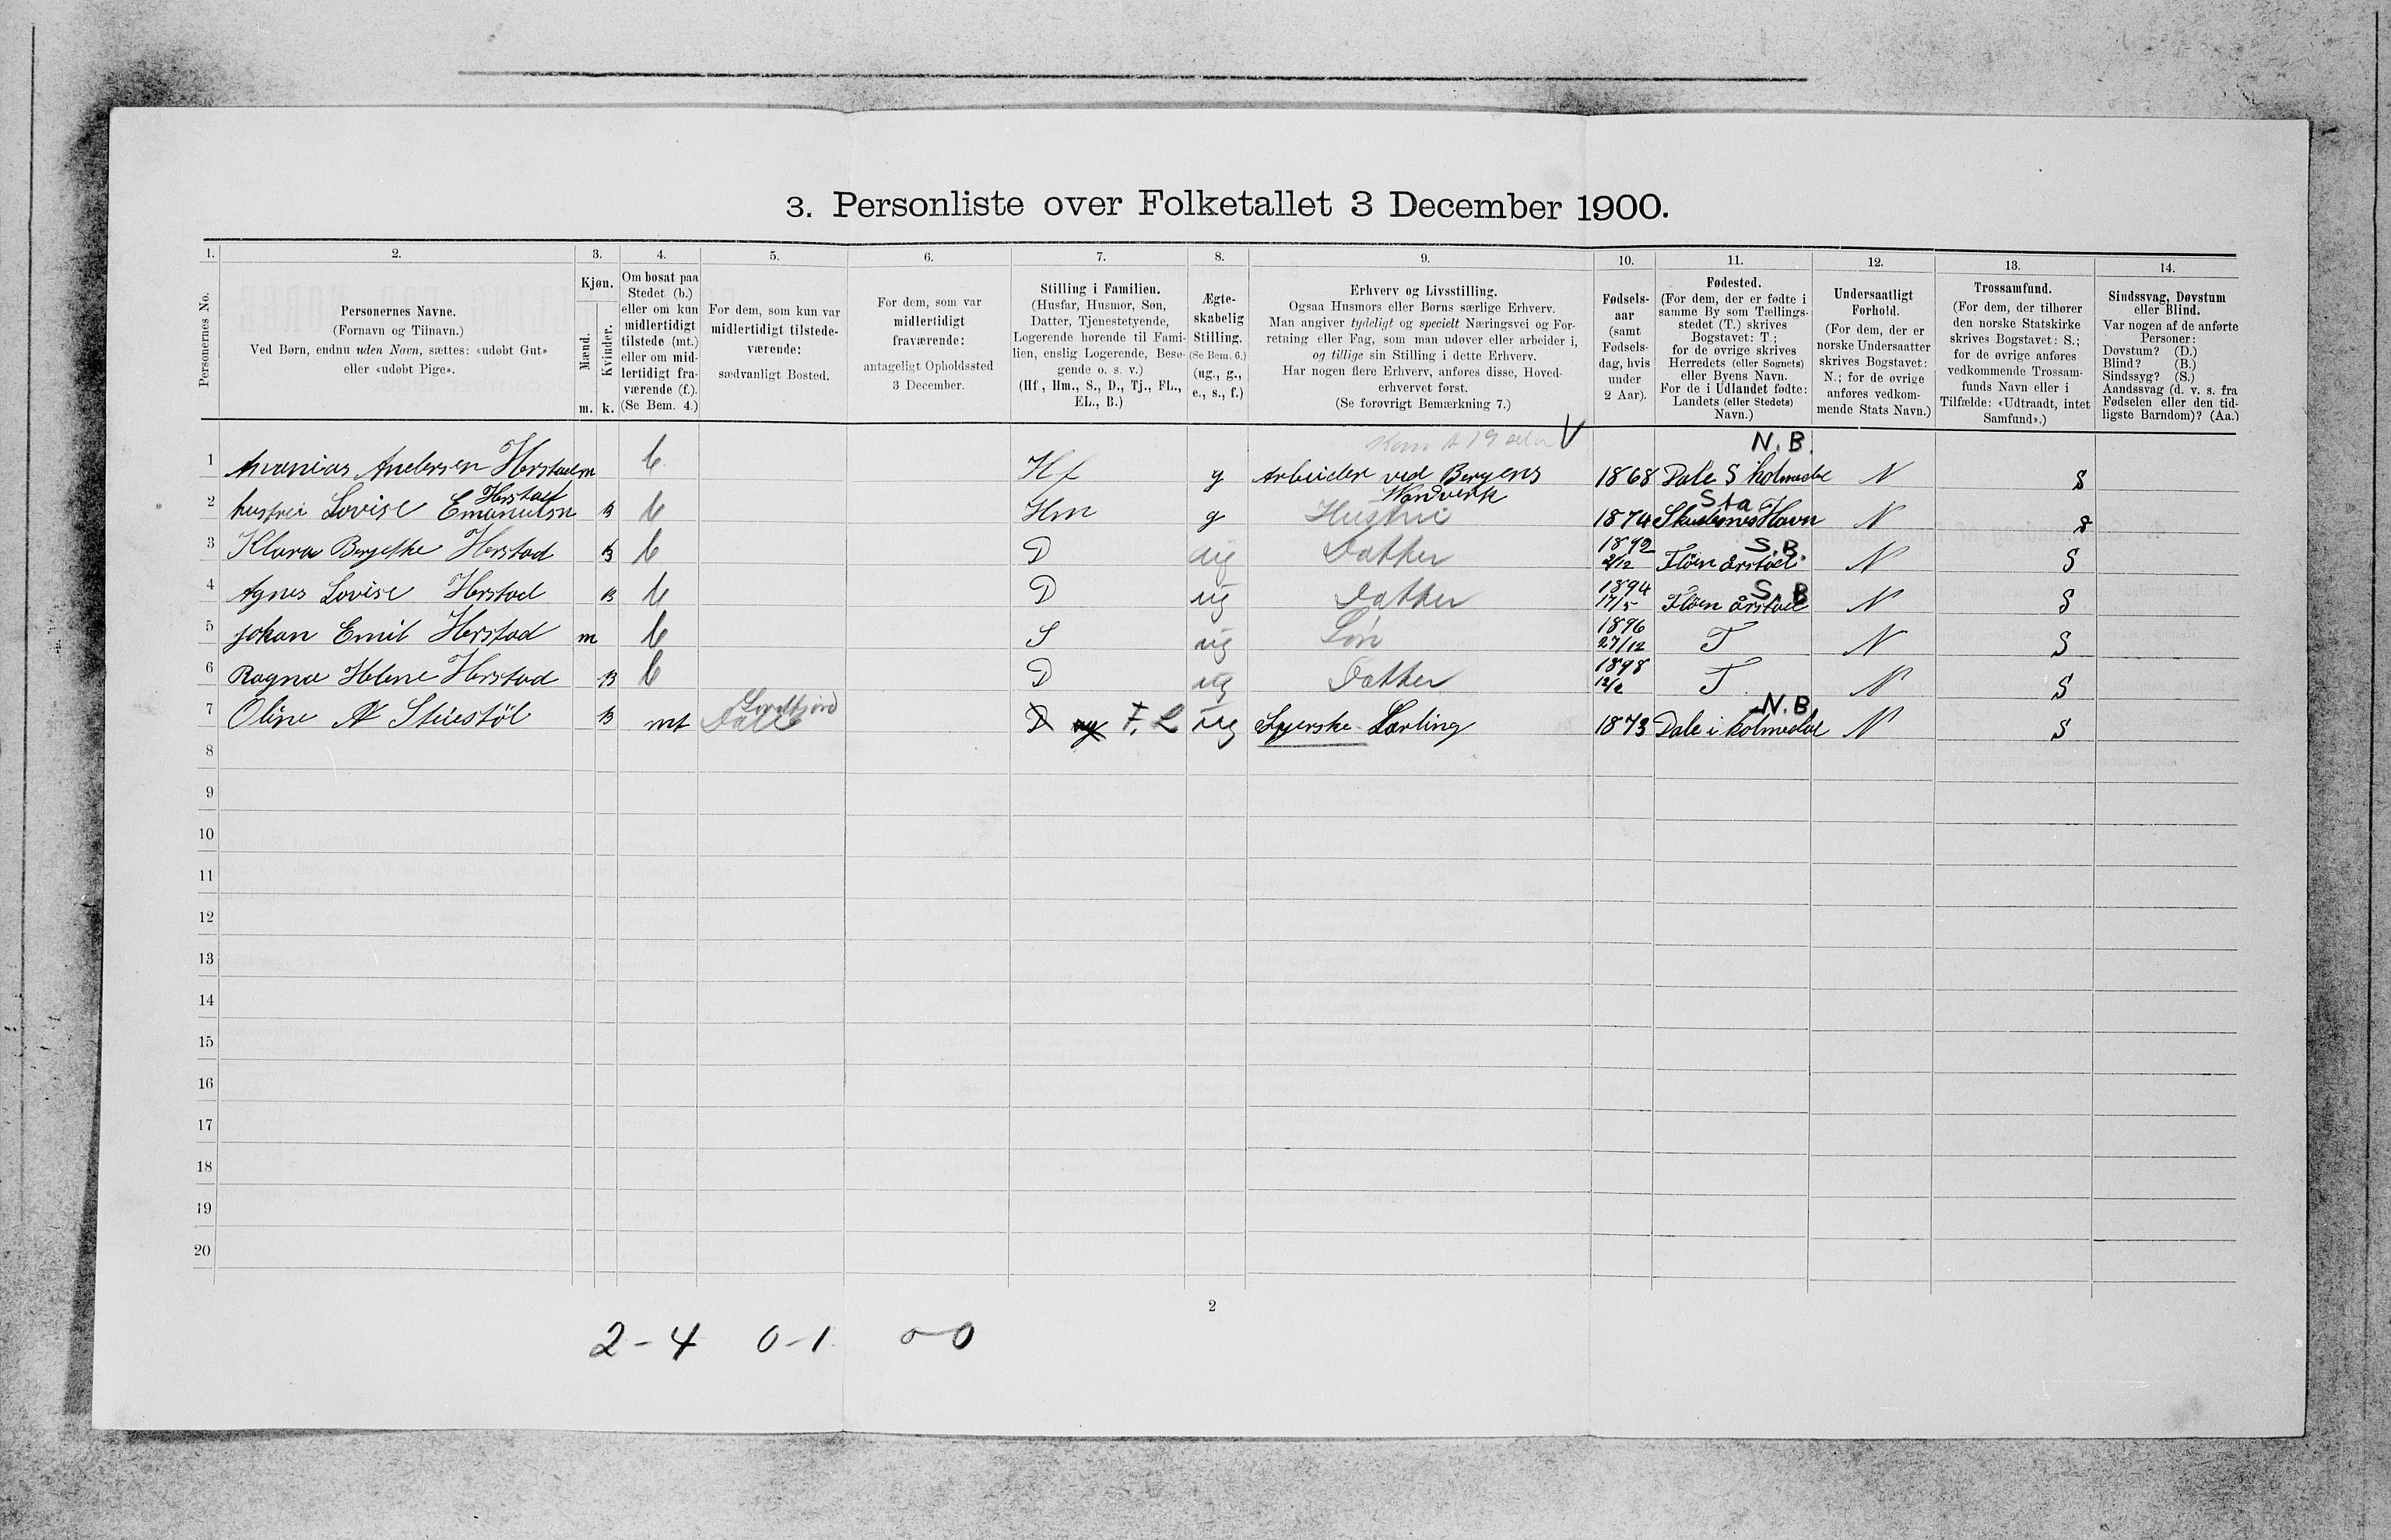 3. Personliste over Folketallet 3 December 1900.
1. 2. 3. 4. 5. 6. 7. 8. 9. 10. 11. 12. 13. 14.
Personernes No.
Personernes Navne.
(Fornavn og Tilnavn.)
Ved Børn, endnu uden Navn, sættes: «udøbt Gut»
eller «udøbt Pige».
Kjøn.
Mænd.
Kvinder.
m. k.
Om bosat paa
Stedet (b.)
eller om kun
midlertidigt
tilstede (mt.)
eller om mid-
lertidigt fra-
værende (f.).
(Se Bem. 4.)
For dem, som kun var
midlertidigt tilstede-
værende:
sædvanligt Bosted.
For dem, som var
midlertidigt
fraværende:
antageligt Opholdssted
3 December.
Stilling i Familien.
(Husfar, Husmor, Søn,
Datter, Tjenestetyende,
Logerende hørende til Fami-
lien, enslig Logerende, Besø-
gende o. s. v.)
(Hf, Hm., S., D., Tj., FL.,
EL., B.)
Ægte-
skabelig
Stilling.
(Se Bem. 6.)
(ug., g.,
e., s., f.)
Erhverv og Livsstilling.
Ogsaa Husmors eller Børns særlige Erhverv.
Man angiver tydeligt og specielt Næringsvei og For-
retning eller Fag, som man udøver eller arbeider i,
og tillige sin Stilling i dette Erhverv.
Har nogen flere Erhverv, anføres disse, Hoved-
erhvervet først.
(Se forøvrigt Bemærkning 7.)
Fødsels-
aar
(samt
Fødsels-
dag, hvis
under
2 Aar).
Fødested.
(For dem, der er fødte i
samme By som Tællings-
stedet (T.) skrives
Bogstavet: T.;
for de øvrige skrives
Herredets (eller Sognets)
eller Byens Navn.
For de i Udlandet fødte:
Landets (eller Stedets)
Navn.)
Undersaatligt
Forhold.
(For dem, der er
norske Undersaatter
skrives Bogstavet:
N.; for de øvrige
anføres vedkom-
mende Stats Navn.)
Trossamfund.
(For dem, der tilhører
den norske Statskirke
skrives Bogstavet: S.;
for de øvrige anføres
vedkommende Trossam-
funds Navn eller i
Tilfælde: «Udtraadt, intet
Samfund».)
Sindssvag, Døvstum
eller Blind.
Var nogen af de anførte
Personer:
Døvstum? (D.)
Blind? (B.)
Sindssyg? (S.)
Aandssvag (d. v. s. fra
Fødselen eller den tid-
ligste Barndom)? (Aa.)
V N.B.
1 Ananias Andersen Herstad m b Hf g Arbeider ved Bergens 1868 Dale S holmedal N S
Herstad Sta
2 hustrei Lovise Emanuelsn k b Hm g Hustru 1874 Skudesnes Havn N S
1892 S.B.
3 Klara Bergethe Herstad k b D ug Datter 2/12 Fløen årstad N S
1894 S.B
4 Agnes Lovise Herstad k b D ug Datter 17/5 Fløen årstad N S
1896
5 Johan Emil Herstad m b S ug Søn 27/12 T N S
1898
6 Ragna Helene Herstad k b D ug Datter 12/2 T N S
Søndfjord N.B.
7 Oline A Stuestøl k mt Dale D ug F. L ug Syerske Lærling 1873 Dale i holmedal N S
8
9
10
11
12
13
14
15
16
17
18
19
20
2
2-4 0-1 0-0